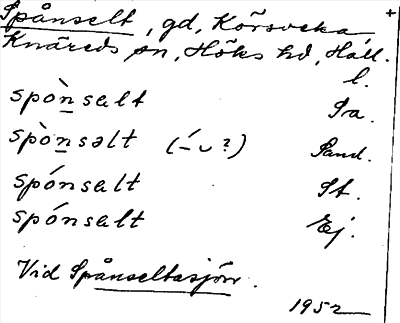 Spånselt, gd, Körsveka +
Knäreds sn, Höks hd, Hall.
l.
spòn̲salt Sa.
spòn̲səlt (–́ ᴗ ?) Sand.
spónsalt St.
spónsalt Ej.
Vid Spånseltasjön.
1952